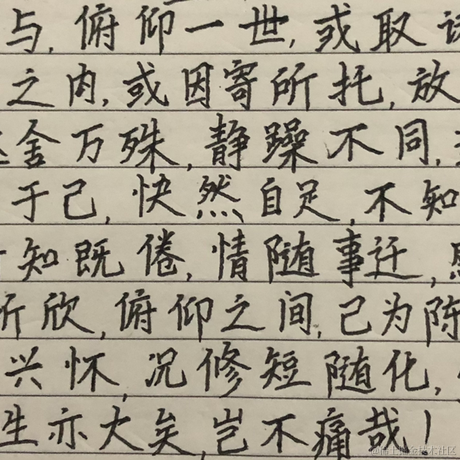 与,俯仰一世,或取
之内,或因寄所托,放
舍万殊,静躁不同,
于己,快然自足,不知
知既倦,情随事迁,
欣,俯仰之间,已为陈
兴怀,况修短随化,
生亦大矣,岂不痛哉!